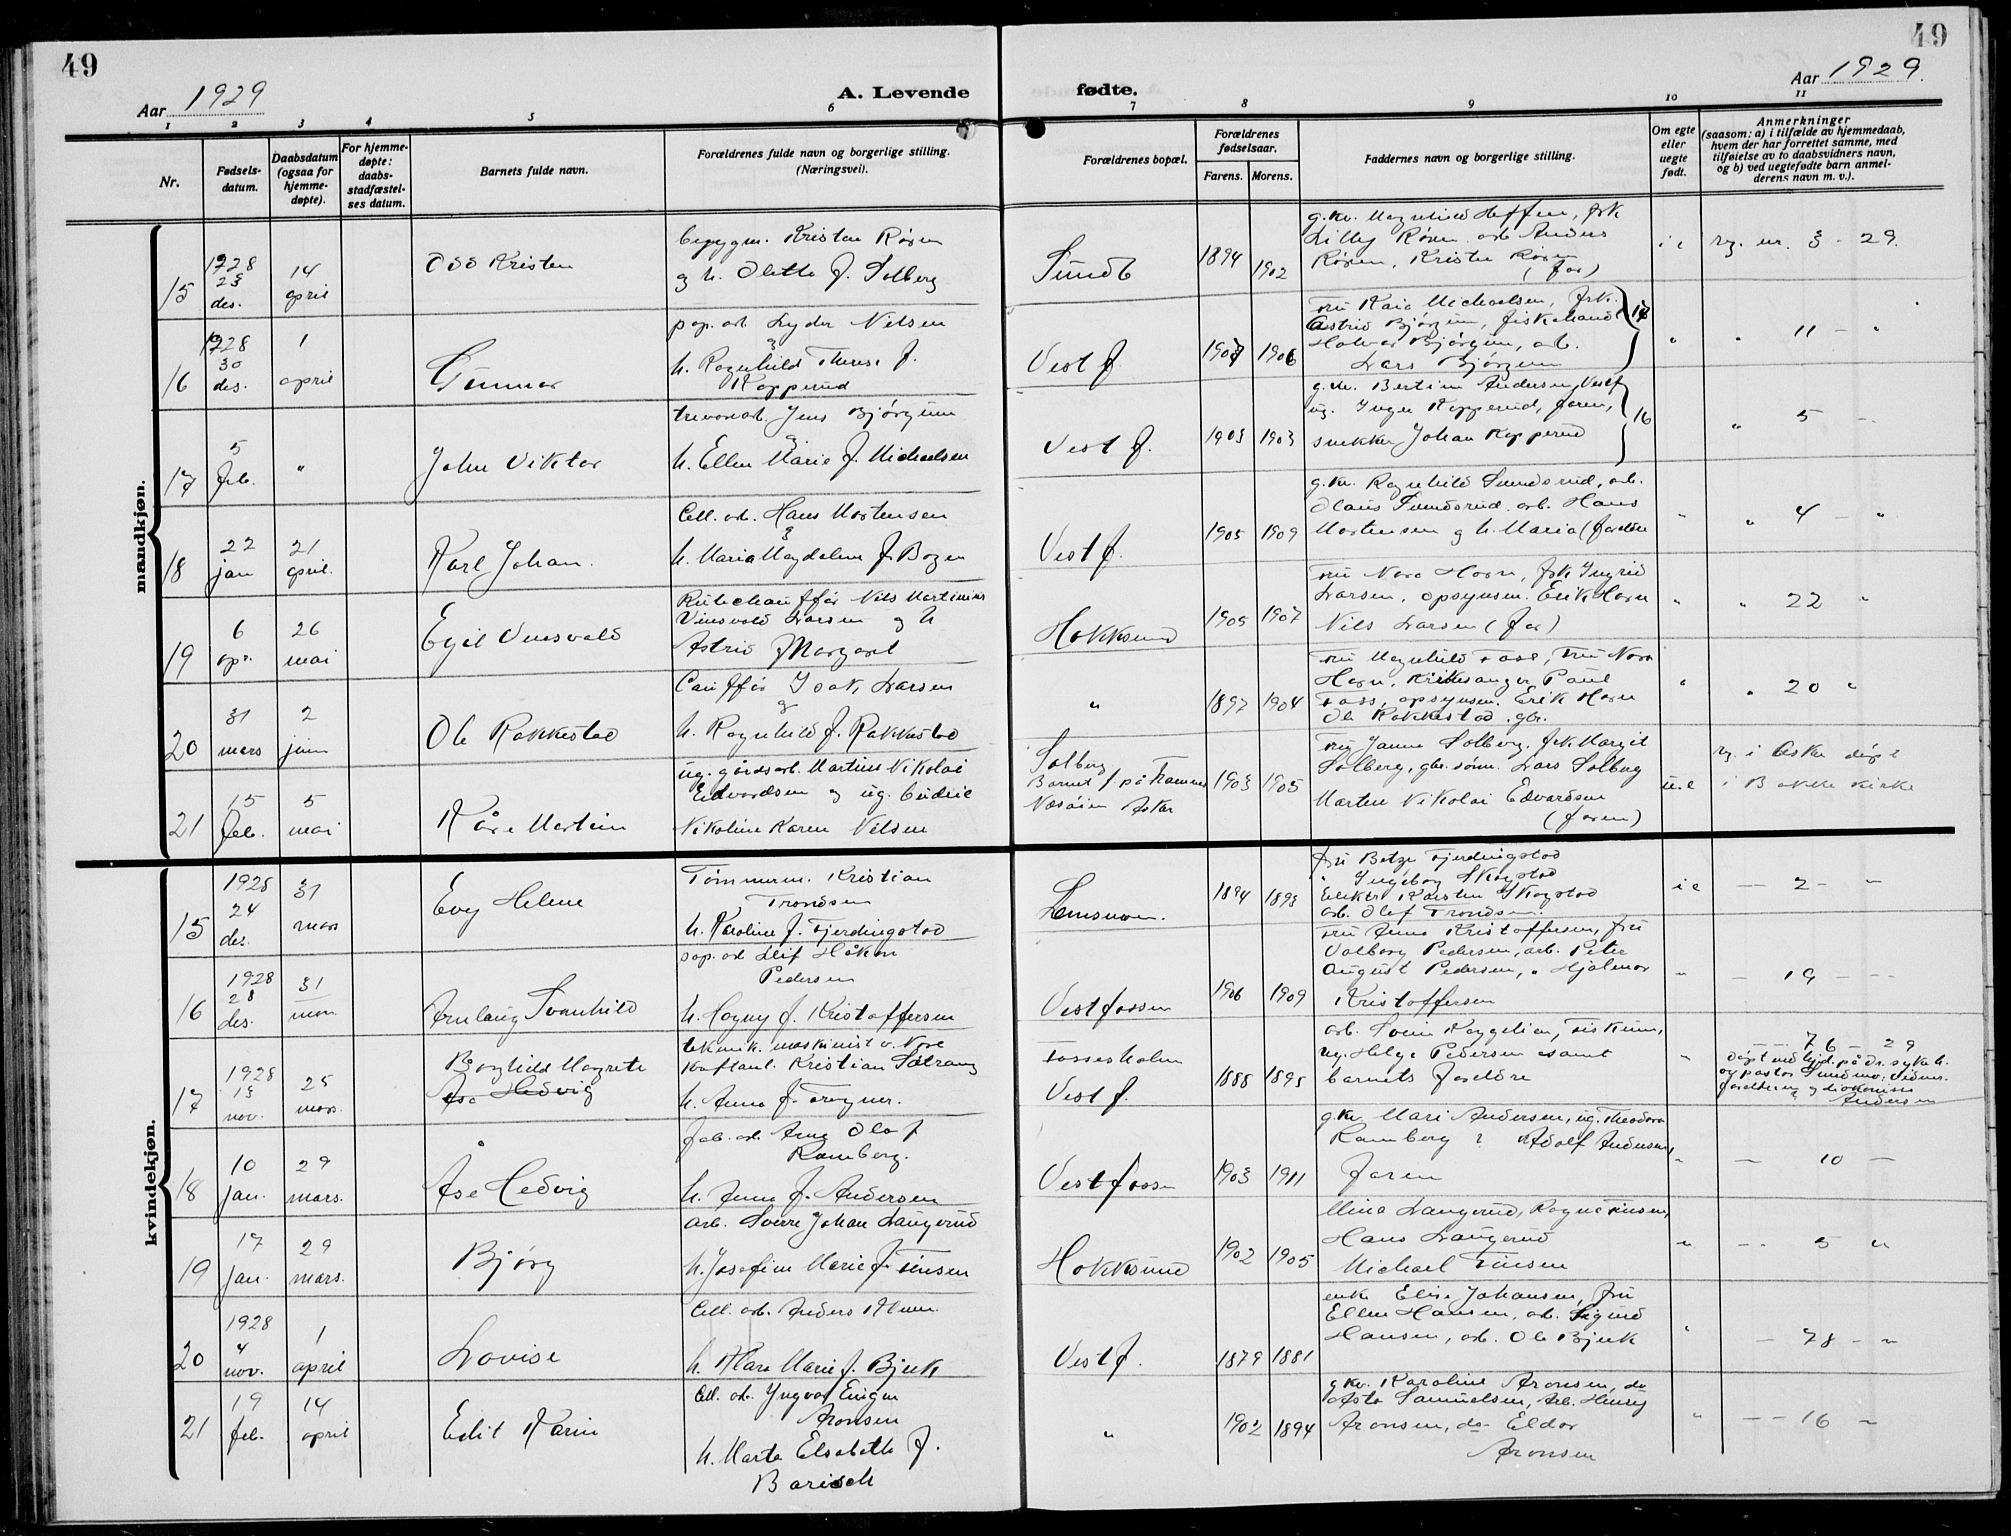 49
49
Aar 1929
A. Levende
fødte.
Aar 1929.
1 2 3 4 5 6 7 8 9 10 11
Nr.
Fødsels-
datum.
Daabsdatum
(ogsaa for
hjemme-
døpte).
For hjemme-
døpte:
daabs-
stadfæstel-
ses datum.
Barnets fulde navn.
Forældrenes fulde navn og borgerlige stilling.
(Næringsvei).
Forældrenes bopæl.
Forældrenes
fødselsaar.
Farens. Morens.
Faddernes navn og borgerlige stilling.
Om egte
eller
uegte
født.
Anmerkninger
(saasom: a) i tilfælde av hjemmedaab,
hvem der har forrettet samme, med
tilføielse av to daabsvidners navn,
og b) ved uegtefødte barn anmel-
derens navn m. v.).
mandkjøn.
15
1928
23
des.
14
april
Odd Kristen
Kristen Røren
og h. Olette f. Solberg
Sundb
1894 1902
g.kv. Magnhild Hoffen, frk
Lilly Røren, arb Anders
Røren, Kristen Røren
(far)
i e
rg. nr. 3 - 29.
16
1928
30
des.
1
april
Gunnar
pap. arb. Lyder Nilsen
g
h. Ragnhild Therese f.
Kopperud
Vestf.
1907 1906
fru Kaia Michaelsen, frk.
Astrid Bjørgum, fiskehandl
Halvor Bjørgum, arb.
Lars Bjørgum
17
" " 11 - "
17
5
feb.
"
John Viktor
trevarearb. Jens Bjørgum
g
h. Ellen Marie f. Michaelsen
Vestf.
1903 1903
g.kv. Bertine Andersen, Vestf
ug. Inger Kopperud, faren,
snekker Johan Kopperud
16
" 5 -
18
22
jan
21
april.
Karl Johan.
Cell. arb. Hans Mortensen
g
h. Maria Magdalene f. Bogen
Vestf.
1905 1909
g.kv. Ragnhild Sundsrud, arb.
Olaus Sundsrud, arb. Hans
Mortensen og h. Maria (foreldre
" " 4 - "
19
6
apr.
26
mai
Egil Vinsvold
Rutechauffør Nils Martinius
Vinsvold Larsen og h
Astrid Margaret
Hokksund
1905 1907
fru Nora Horn, frk Ingrid
Larsen, opsynsm. Erik Horn
Nils Larsen (far)
" " 22 "
20
31
mars
2
juni
Ole Rakkestad
Cauffør Isak Larsen
g
h. Ragnhild f. Rakkestad
"
1897 1904
fru Magnhild Foss, fru Nora
Horn, kirkesanger Paul
Foss, opsynsm. Erik Horn
Ole Rakkestad. gbr.
" " 20 "
21
15
feb.
5
mai
Kåre Martin
ug. gårdsarb. Martin Nikolai
Edvardsen og ug.
Nikoline Karen Nilsen
Solberg
Barnet f. på
Nesøien Asker
1903 1905
fru Janna Solberg, frk Margit
Solberg, gbr.sønn. Lars Solberg
Martin Nikolai Edvardsen
(faren)
u.e
rg. i Asker døpt
i Bakke kirke
kvindekjøn.
15
1928
24
des.
31
mars
Evy Helene
Tømmerm. Kristian
Trondsen
h. Karoline f. Fjerdingstad
1894 1893
fru Betzy Fjerdingstad
" Ingeborg Skogstad
Karsten Skogstad
arb. Olaf Trondsen.
i e
— 2 - —
16
1928
28
des.
31
mar.
Arnlaug Svanhild
pap. arb Leif Håkon
Pedersen
h. Hagny f. Kristoffersen
Vestfossen
1906 1909
fru Anna Kristoffersen, fru
Valborg Pedersen, arb. Peter
August Pedersen, " Hjalmar
Kristoffersen
" - 19 - --
17
1928
15
nov.
25
mars.
Borghild Margrete
Åse Hedvig
teknik. maskinist v. Nore
Kraftanl. Kristian Sætrang
h. Anna f. Fragner.
Fossesholm
Vestf.
1888 1895
arb. Svein Røggelien, Fiskum,
ug. Helga Pedersen samt
barnets foreldre
"
76 - 29
døpt ved hjd. på Dr. sykeh.
av pastor Sundmo. Vidner:
foreldrene og diakonisse
Andersen
18
10
jan.
29
mars.
Åse Hedvig
fab. arb. Arne Olaf
Ramberg.
h. Anna f. Andersen
Vestfossen
1903 1911
g.kv. Mari Andersen, ug. Theodora
Ramberg, Adolf Andersen,
faren
" — 10 —
19
17
jan.
29
mars.
Bjørg
arb. Sverre Johan Langerud
h. Josefine Marie f. Finsen
Hokksund
1902 1905
Mina Langerud, Ragna Finsen,
Hans Langerud
Michael Finsen
" -- 5 "
20
1928
4
nov.
1
april
Lovise
Cell. arb. Anders
h. Klara Marie f. Bjerk
Vestf.
1879 1881
enke Elise Johansen, fru
Ellen Hansen, arb. Sigurd
Hansen, arb. Ole Bjerk
" — 78 - "
21
19
feb.
14
april
Edit Karin
Cell. arb. Yngvar Eugen
Aronsen
h. Marta Elsabeth f.
Barisch
"
1902 1894
g kv. Karoline Aronsen, do
Asta Samuelsen, Arb. Henry
Aronsen, do Eldor
Aronsen
" -- 16 -